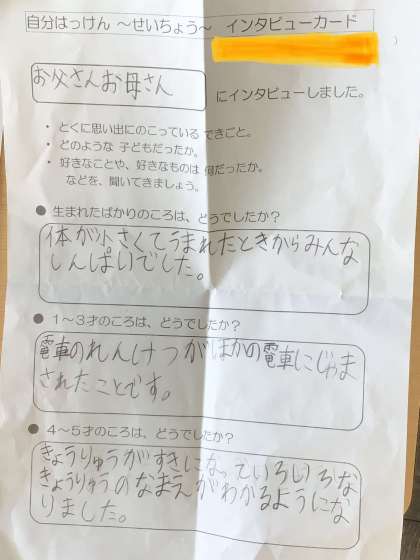 自分はっけん ～せいちょう～ インタビューカード
）
お父さんお母さん
にインタビューしました。
・ とくに思い出にのこっている できごと。
・ どのような 子どもだったか。
・ 好きなことや、好きなものは 何だったか。
などを、聞いてきましょう。
● 生まれたばかりのころは、どうでしたか？
体が小さくてうまれたときからみんな
しんぱいでした。
● １～３才のころは、どうでしたか？
電車のれんけつがほかの電車にじゃま
されたことです。
● ４～５才のころは、どうでしたか？
きょうりゅうがすきになっていろいろな
きょうりゅうのなまえがわかるようにな
りました。